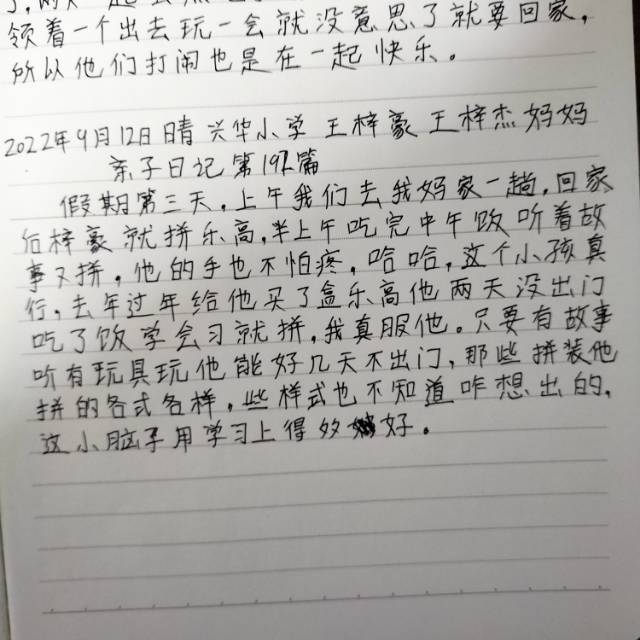 领着一个出去玩一会就没意思了就要回家,
所以他们打闹也是在一起快乐。
2022年9月12日晴 兴华小学 王梓豪 王梓杰妈妈
亲子日记第192篇
假期第三天,上午我们去我妈家一趟,回家
后梓豪就拼乐高,半上午吃完中午饭听着故
事又拼,他的手也不怕疼,哈哈,这个小孩真
行,去年过年给他买了盒乐高他两天没出门
吃了饭学会习就拼,我真服他。只要有故事
听有玩具玩他能好几天不出门,那些拼装他
拼的各式各样,些样式也不知道咋想出的,
这小脑子用学习上得多好。